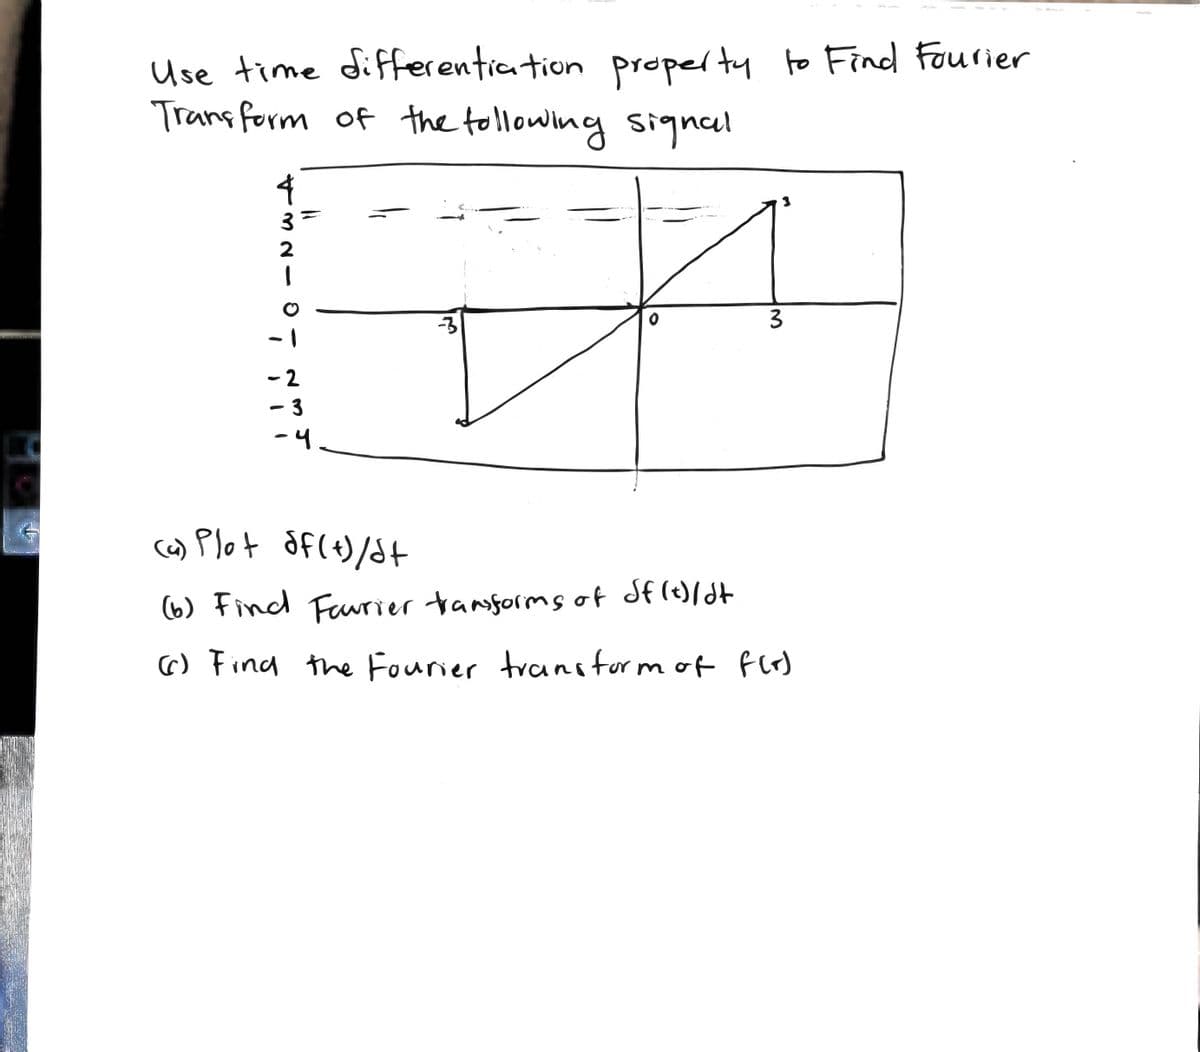 Use time differentiation property to Find Fourier
Transform of the following signal
4
3
2
1
0
-1
-2
-3
-4
3
-3
0
3
(a) Plot df(t)/dt
(b) Find Fourier transforms of df(t)/dt
(c) Find the Fourier transform of f(t)